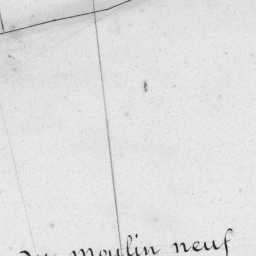 du moulin neuf